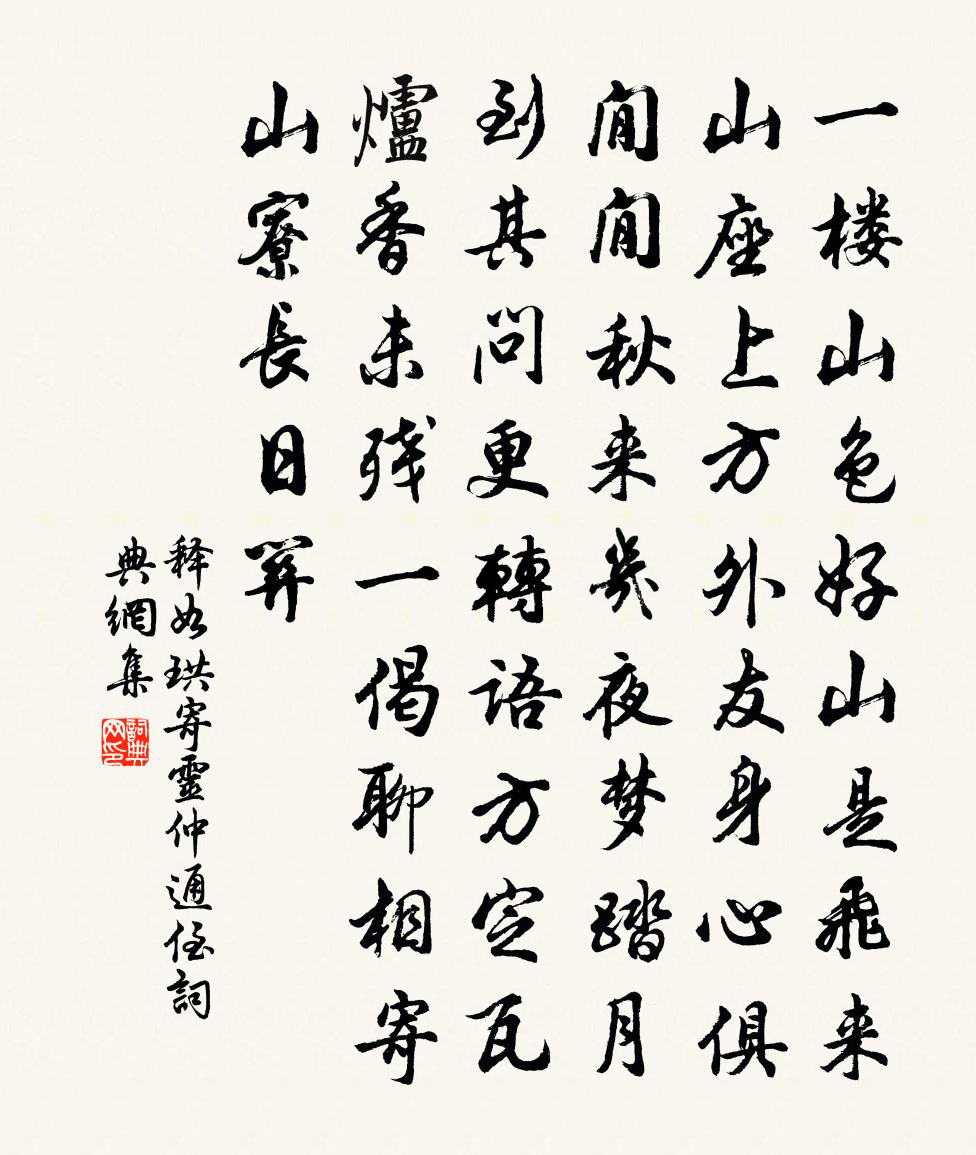 一楼山色好山是飛来
山座上方外友身心俱
閒閒秋来幾夜梦踏月
到其問更轉語方定瓦
爐香未残一偈聊相寄
山寮長日関
释如珙寄靈仲通侄詞
典網集
詞典网印